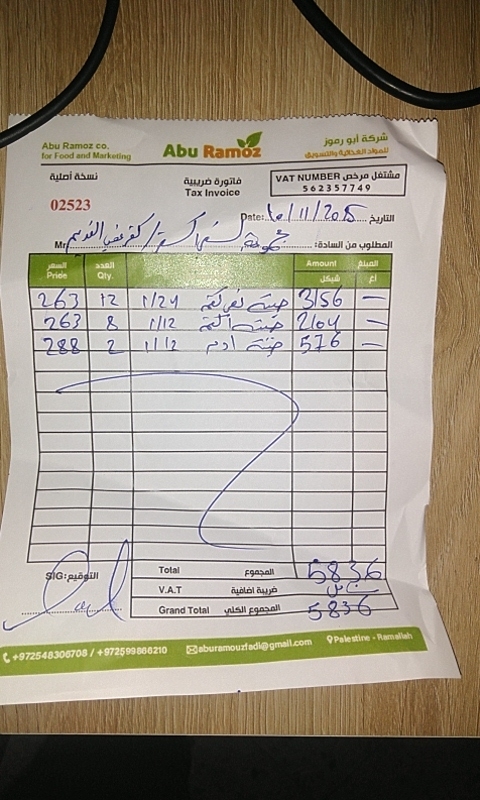 Abu Ramoz co.
for Food and Marketing
Abu Ramoz
شركة أبو رموز
للمواد الغذائية والتسويق
نسخة أصلية
فاتورة ضريبية
Tax Invoice
مشتغل مرخص VAT NUMBER
562357749
02523
Date: 10/11/2015 التاريخ
Mr. المطلوب من السادة:
السعر العدد Amount المبلغ
Pride Qty. شيكل أغ
263 12 1/24 3156 —
263 8 1/12 2104 —
288 2 1/12 576 —
SIG: التوقيع
Total المجموع 5836
V.A.T ضريبة اضافية
Grand Total المجموع الكلي 5836
+972548306708 / +972599866210 aburamouzfadi@gmail.com Palestine - Ramallah